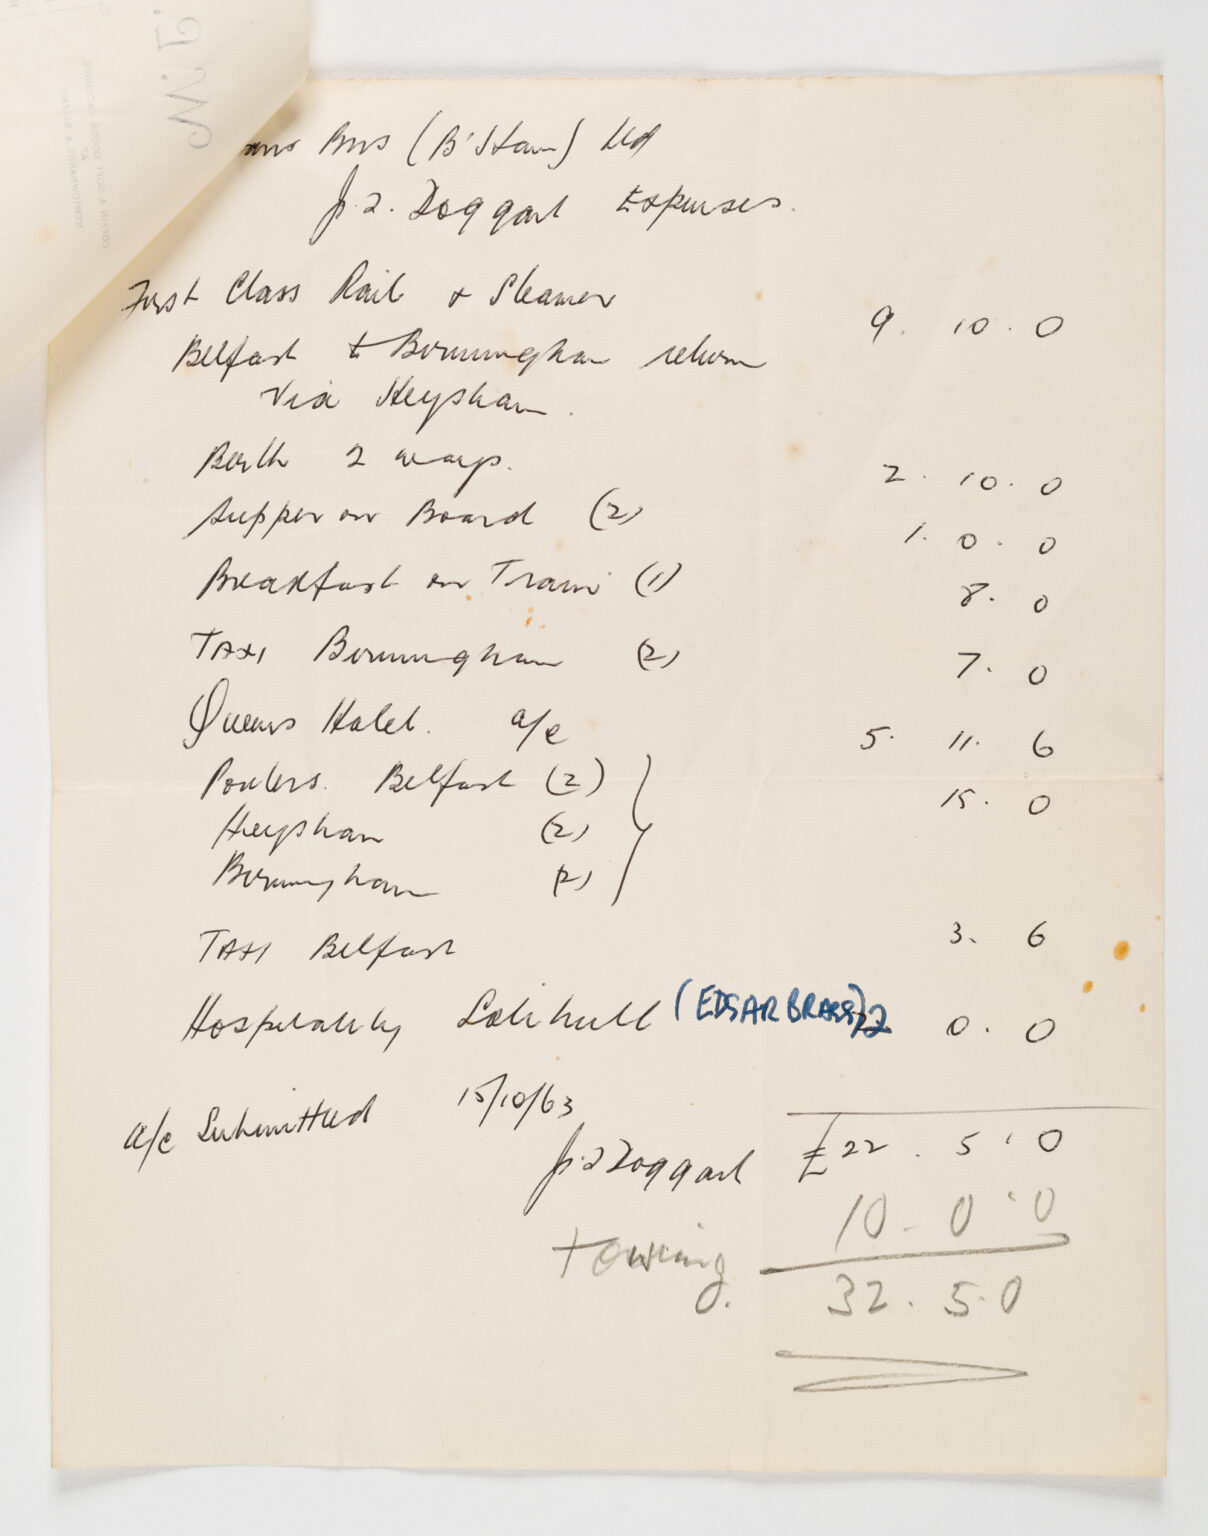 Bros (B'Ham) Ltd
Doggart Expenses.
First Class Rail & Steamer
Belfast to Birmingham return 9. 10. 0
Via Heysham.
Berth 2 ways. 2. 10. 0
Supper on Board (2) 1. 0. 0
Breakfast on Train (1) 8. 0
TAXI Birmingham (2) 7. 0
Queens Hotel. a/c 5. 11. 6
Porters. Belfast (2) 15. 0
Heysham (2)
Birmingham (2)
TAXI Belfast 3. 6
Hospitality Solihull (EDGAR BRASS) 2 0. 0
a/c Submitted 15/10/63
Doggart £22. 5. 0
10. 0. 0
towing
32. 5. 0